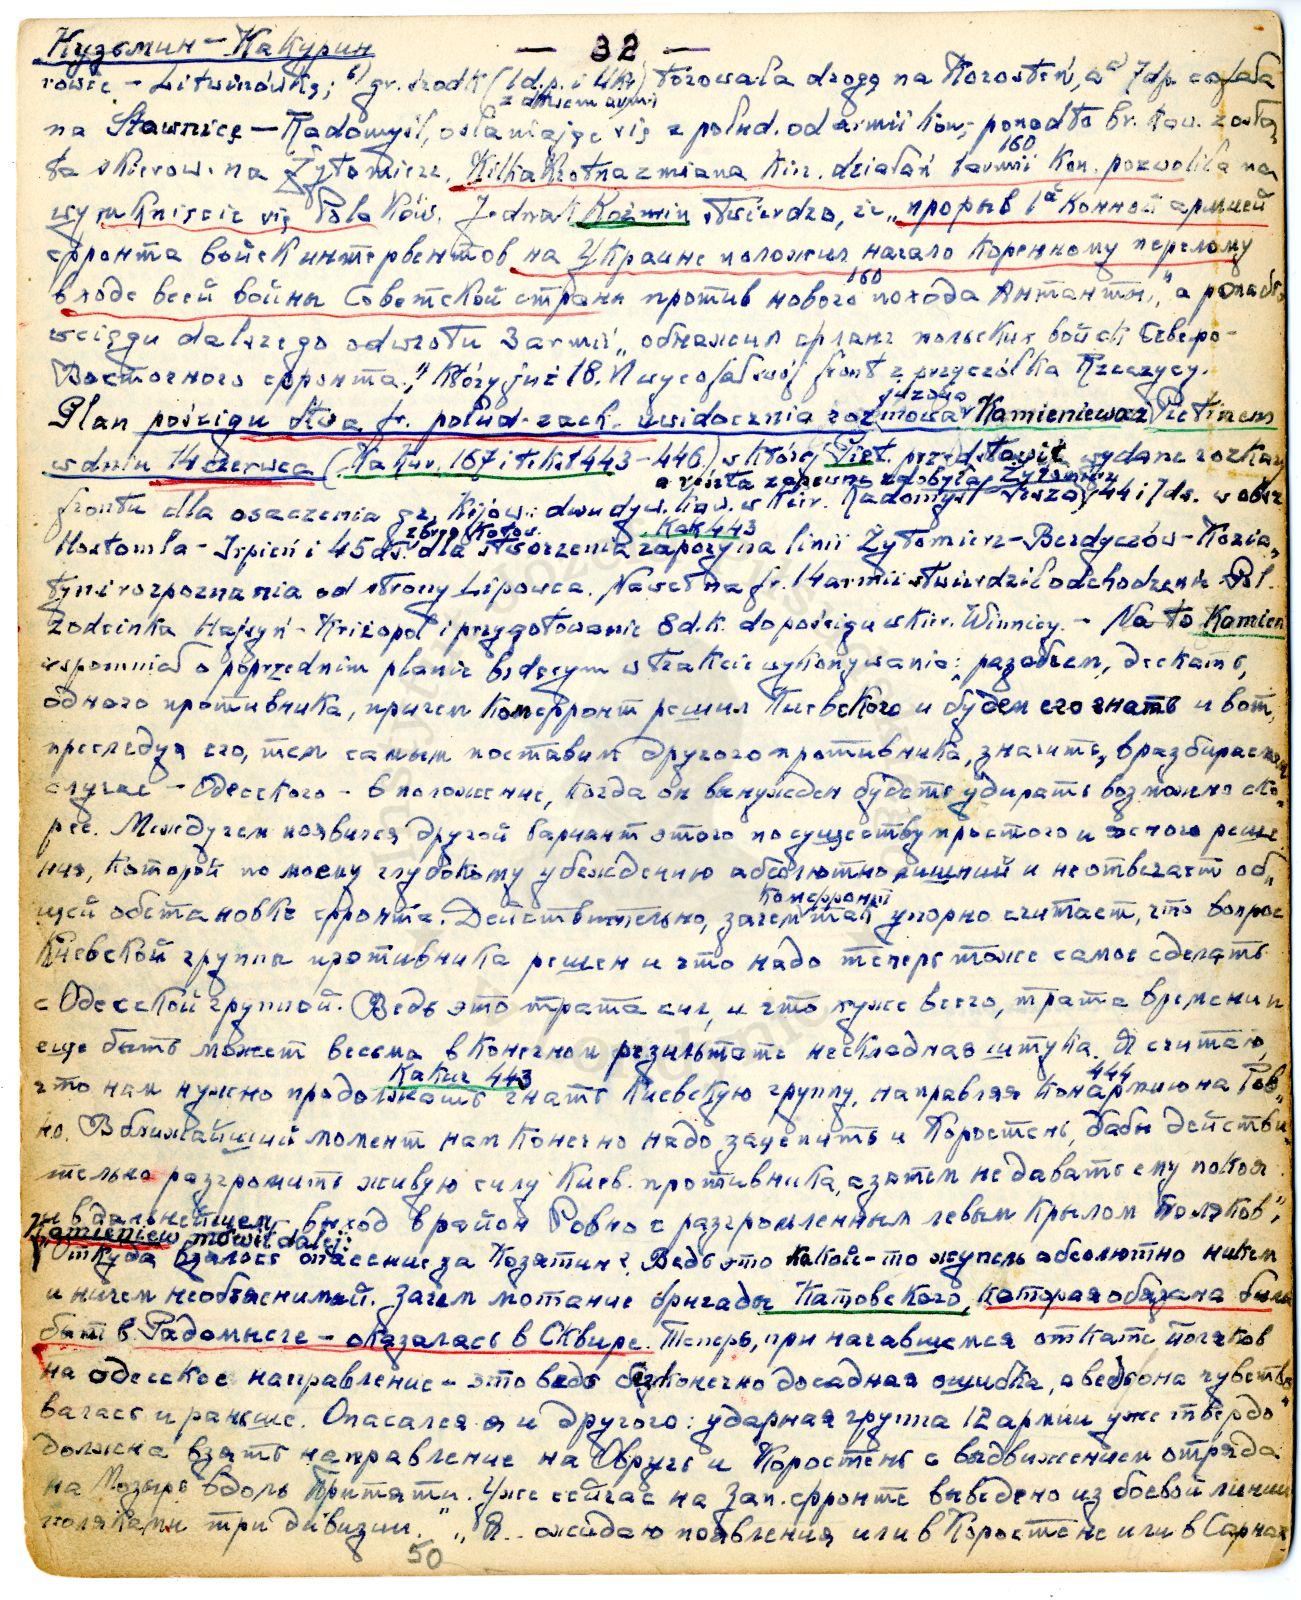 Кузьмин – Какурин
— 32 —
rowce – Litwinówkę; b) gr. środk (1d.p. i Ukr) torowała drogę na Korosteń, a c) 7dp. cofała
z d-twem armii
na Sławnicę – Radomyśl, osłaniając się z połud. od armii kon., ponadto br. kaw. zosta,
160
ła skierow. na Żytomierz. Kilkakrotna zmiana kier. działań 1 armii Kon. pozwoliła na
wymknięcie się Polaków. Jednak Kuźmin stwierdza, że „прорыв 1ой Конной армией
фронта войск интервентов на Украине положил начало коренному перелому
160
в ходе всей войны Советской страны против нового похода Антанты," a ponadto
wciągu dalszego odwrotu 3 armii „обнажил фланг польских войск Северо-
Восточного фронта," który już 18.VI wycofał swój front z przyczółka Rzeczycy.
Plan pościgu dtwa fr. połud-zach. uwidocznia rozmowa Kamieniewa z Pietinem
w dniu 14 czerwca (Kakur. 167 i tekst 443–446) w której Piet. przedstawił wydane rozkazy
a reszta zapewne zdobyła Żytomierz
frontu dla osaczenia gr. Kijów.: dwu dyw. kaw. w kier. Radomyśl reszta, 44 i 7 ds. w obsz
z bryg Kotow. Kak 443
Hostomla – Irpień i 45 ds. dla stworzenia zapory na linii Żytomierz–Berdyczów–Kozia,
tyn i rozpoznania od strony Lipowca. Nawet na fr. 14 armii stwierdził odchodzenie Pol.
z odcinka Hajsyń – Kriżopol i przygotowanie 8 d.k. do pościgu w kier. Winnicy. – Na to Kamien
wspomniał o poprzednim planie będącym w trakcie wykonywania: „разобьем, дескать,
одного противника, причем Комфронт решил Киевского и будем его гнать и вот,
преследуя его, тем самым поставим другого противника, значит, в разбираемом
случае – Одесского – в положение, когда он вынужден будет удирать возможно ско-
рее. Между тем появился другой вариант этого по существу простого и ясного реше
ния, который по моему глубокому убеждению абсолютно лишний и не отвечает об,
Комфронт
щей обстановке фронта. Действительно, зачем так упорно считает, что вопрос
Киевской группы противника решен и что надо теперь тоже самое сделать
с Одесской группой. Ведь это трата сил, и что хуже всего, трата времени и
еще быть может весьма в конечном результате нескладная штука. Я считаю,
Kakur 443 444
что нам нужно продолжать гнать Киевскую группу, направляя Конармию на Ров,
но. В ближайший момент нам конечно надо зацепить и Коростень, дабы действи
тельно разгромить живую силу Киев. противника, а затем не давать ему покоя
и в дальнейшем выход в район Ровно с разгромленным левым крылом Поляков".
Kamieniew mówił dalej:
„Откуда взялось опасение за Козятин? Ведь это какой-то жупель абсолютно никем
и ничем необъяснимый. Зачем мотание бригады Катовского, которая обязана была
быть в Радомысле – оказалась в Сквире. Теперь, при начавшемся откате поляков
на одесское направление – это ведь бесконечно досадная ошибка, а ведь она чувство
валась и раньше. Опасался я и другого: ударная группа 12 армии уже твердо
должна взять направление на Овруч и Коростень с выдвижением отряда
на Мозырь вдоль Припяти. Уже сейчас на Зап. фронте выведено из боевой линии
поляками три дивизии." „Я.. ожидаю появления или в Коростене или в Сарнах
50